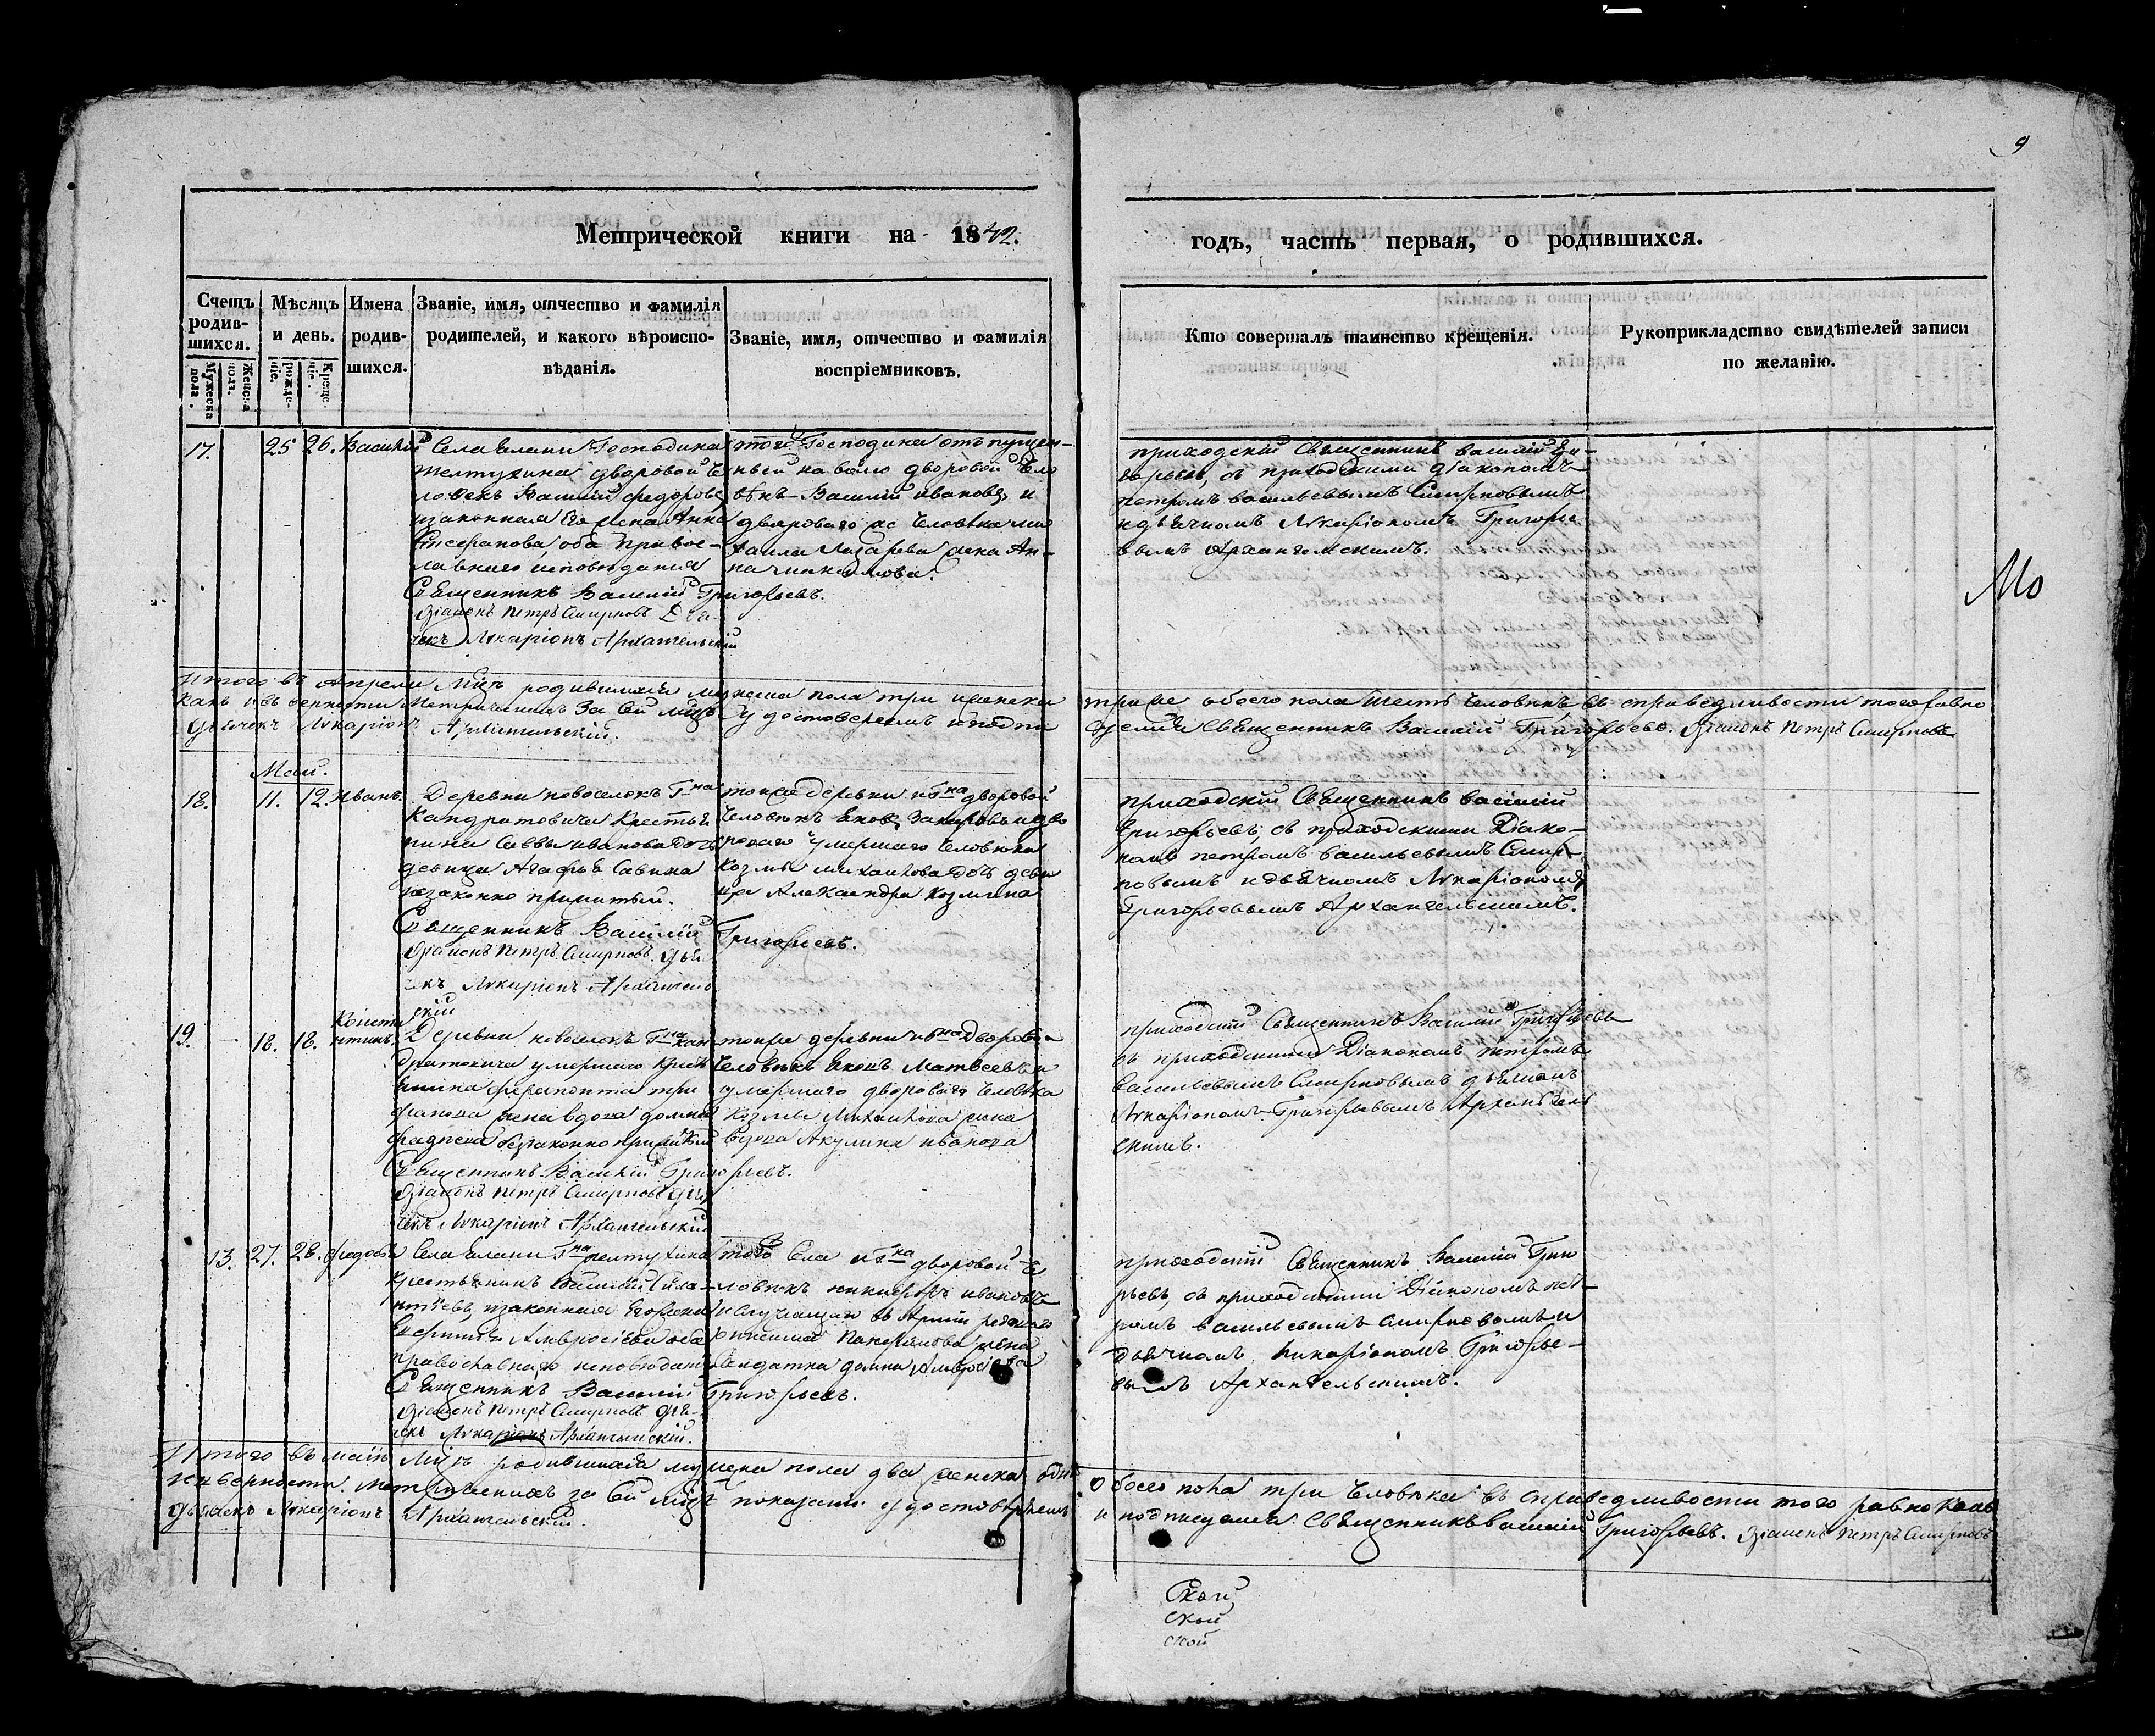 9
Метрической книги на 1842.
годъ, часть первая, о родившихся.
Счетъ родив-шихся.
Мужеска пола.
Женска пола.
Мѣсяцъ и день.
рожде-ніе.
Креще-ніе.
Имена родив-шихся.
Званіе, имя, отчество и фамилія
родителей, и какого вѣроиспо-
вѣданія.
Званіе, имя, отчество и фамилія
воспріемниковъ.
Кто совершалъ таинство крещенія.
Рукоприкладство свидѣтелей записи
по желанію.
17. 25 26. Василій
Села Елани Господина
Желтухина дворовой че
ловекъ Василій федоровъ
изаконная Его жена Анна
оба Правос-
лавнаго исповѣданія
Священникъ Василій Григорьевъ.
Діаконъ Петръ Смирновъ Дья-
чекъ Лукаріонъ Архангельскій
того Господина отъпущен-
ный наволю дворовой чело
вѣкъ Василій ивановъ, и
двороваго же человѣка ми
хаила Лазарева жена Ан-
на
приходскій Священникъ Василій Гри-
горьевъ, съ приходскими діакономъ
петромъ васильевымъ Смирновымъ
идьячкомъ Лукаріономъ Григорье
вымъ Архангельскимъ.
Мо
Итого въ Апрели Мцѣ родившихся мужеска пола три иженска
трижъ обоего пола шесть человѣкъ, въ справедливости того равно
какъ ивъ верности Метрическихъ За Сей Мцъ удостоверяемъ иподпи
суемся Священникъ Василій Григорьевъ. Діаконъ Петръ Смирновъ
Дьячекъ Лукаріонъ Архангельскій.
Маи.
18. 11. 12. Иванъ.
Деревни новоселокъ Гна
Кандратовича Крестья
нина Саввы иванова дочь
девица Агафья Савина
незаконно прижитый.
Священникъ Василій Григорьевъ.
Діаконъ Петръ Смирновъ Дья-
чекъ Лукаріонъ Архангель
скій
тойже деревни иГна дворовой
человекъ Яковъ Захаровъ идво
роваго умершаго человека
Козмы михаилова дочь деви
ца Александра Козмина
приходскій Священникъ Василій
Григорьевъ, съ приходскими Діако-
номъ петромъ васильевымъ Смир-
новымъ идьячкомъ Лукаріономъ
Григорьевымъ Архангельскимъ.
19. 18. 18. Конста нтинъ.
Деревни новоселокъ Гна Кан-
дратовича умершаго Крест
янина ферапонта три
фанова жена вдова домна
фадѣева беззаконно прижитый
Священникъ Василій Григорьевъ.
Діаконъ Петръ Смирновъ Дья
чекъ Лукаріонъ Архангельскій
тойже деревни иГна Дворовой
человѣкъ Яковъ Матвеевъ и
умершаго двороваго человѣка
Козмы Михаилова жена
вдова Акулина иванова
приходскій Священникъ Василій Григорьевъ
съ приходскими Діакономъ петромъ
васильевымъ Смирновымъ дьячкомъ
Лукаріономъ Григорьевымъ Архангель
скимъ.
13. 27. 28.
Села Елани Гна желтухина
крестьянинъ Василій
изаконная Его жена
Амвросіева оба
православнаго исповѣданія
Священникъ Василій Григорьевъ.
Діаконъ Петръ Смирновъ Дья-
чекъ Лукаріонъ Архангельскій.
того Села иГна дворовой че
ловѣкъ никифоръ ивановъ
и служащаго въ Арміи рядоваго
жена
Салдатка домна Амвросіева
приходскій Священникъ Василій Григо
рьевъ, съ приходскими Діакономъ пет-
ромъ васильевымъ Смирновымъ и
дьячкомъ Лукаріономъ Григорье-
вымъ Архангельскимъ.
Итого въ маіи Мцѣ родившихся мужеска пола два женска одна
обоего пола три человѣка въ справедливости того равно какъ
и верности Метрическихъ за Сей Мцъ показаніи удостовѣряемъ
и подписуемся Священникъ Василій Григорьевъ. Діаконъ Петръ Смирновъ
Дьячекъ Лукаріонъ Архангельскій.
Ской
ской
ской